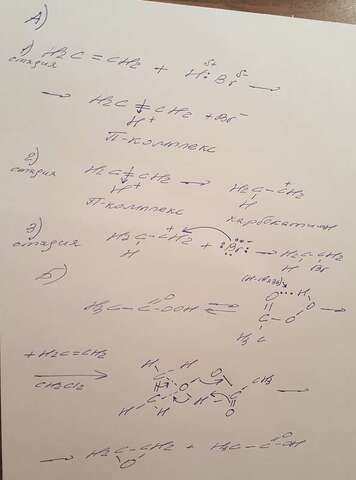 А)
1) стадия H2C=CH2 + H:Br δ+ δ- →
→ H2C=CH2 + Br-
H+
П-комплекс
2) стадия H2C=CH2 → H2C-CH2 +
H+ H
П-комплекс карбокатион
3) стадия H2C-CH2 + + :Br: - → H2C-CH2
H H Br
Б)
(H-связь)
H3C-C=O-OOH ⇌ O ... H
C O O
H3C
+ H2C=CH2
CH2Cl2
H H O CH3
C O C
C H O
H H
→ H2C-CH2 + H3C-C=O-OH
O